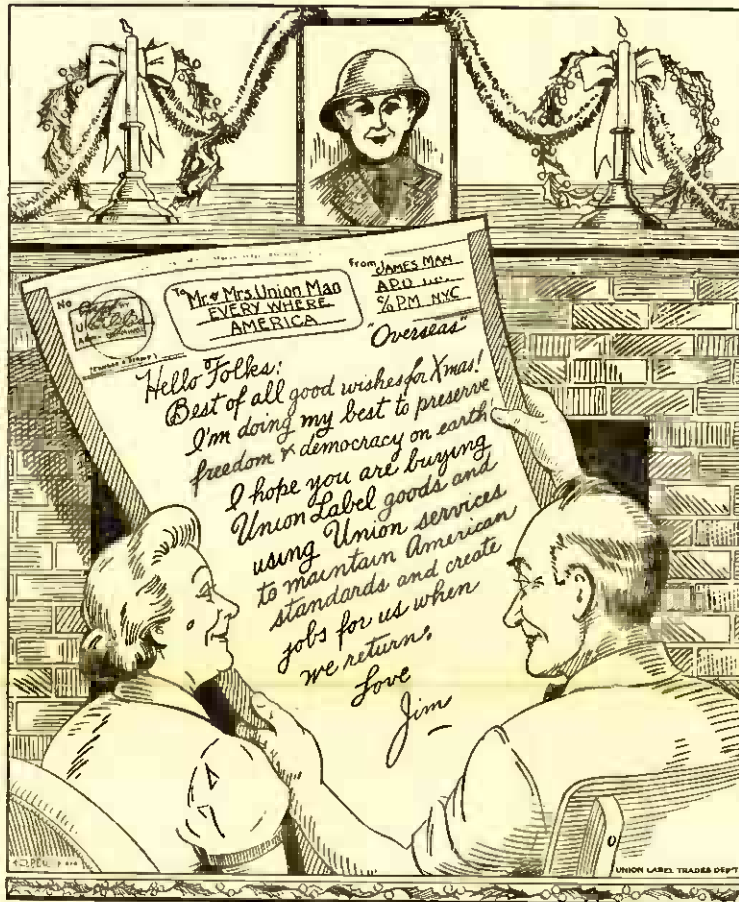 No
To Mr. & Mrs. Union Man
EVERY WHERE
AMERICA
From JAMES MAN
APO
c/o PM NYC
"Overseas"
Hello Folks:
Best of all good wishes for Xmas!
I'm doing my best to preserve
freedom & democracy on earth!
I hope you are buying
Union Label goods and
using Union services
to maintain American
standards and create
jobs for us when
we return.
Love
Jim
UNION LABEL TRADES DEP'T